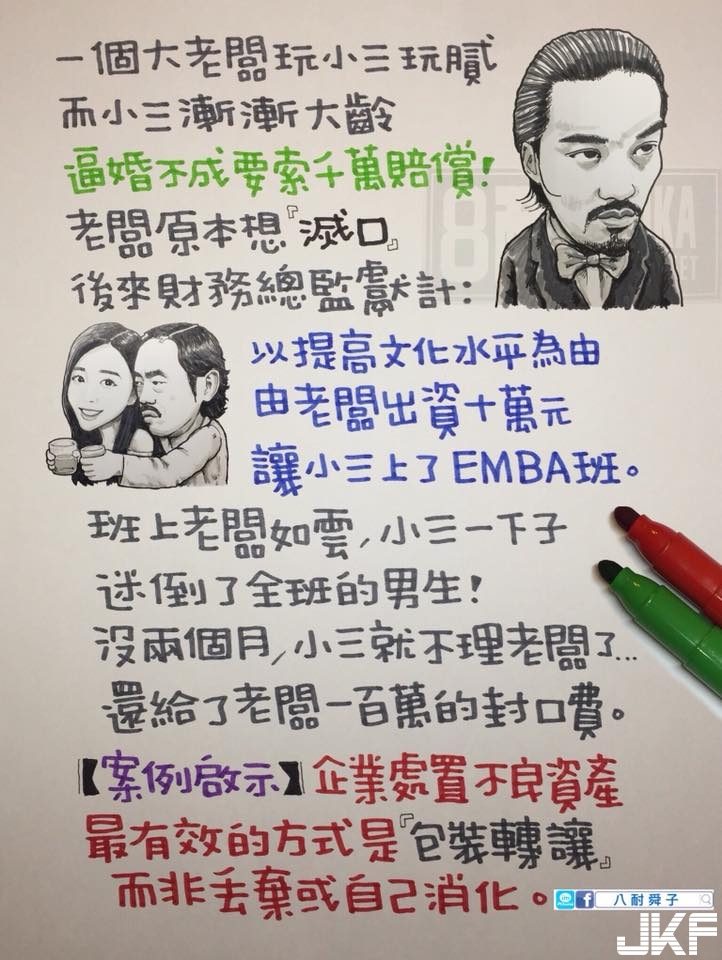 一個大老闆玩小三玩膩
而小三漸漸大齡
逼婚不成要索千萬賠償!
老闆原本想『滅口』
後來財務總監獻計:
以提高文化水平為由
由老闆出資十萬元
讓小三上了EMBA班。
班上老闆如雲,小三一下子
迷倒了全班的男生!
沒兩個月,小三就不理老闆了...
還給了老闆一百萬的封口費。
【案例啟示】企業處置不良資產
最有效的方式是『包裝轉讓』
而非丟棄或自己消化。
八耐舜子
JKF